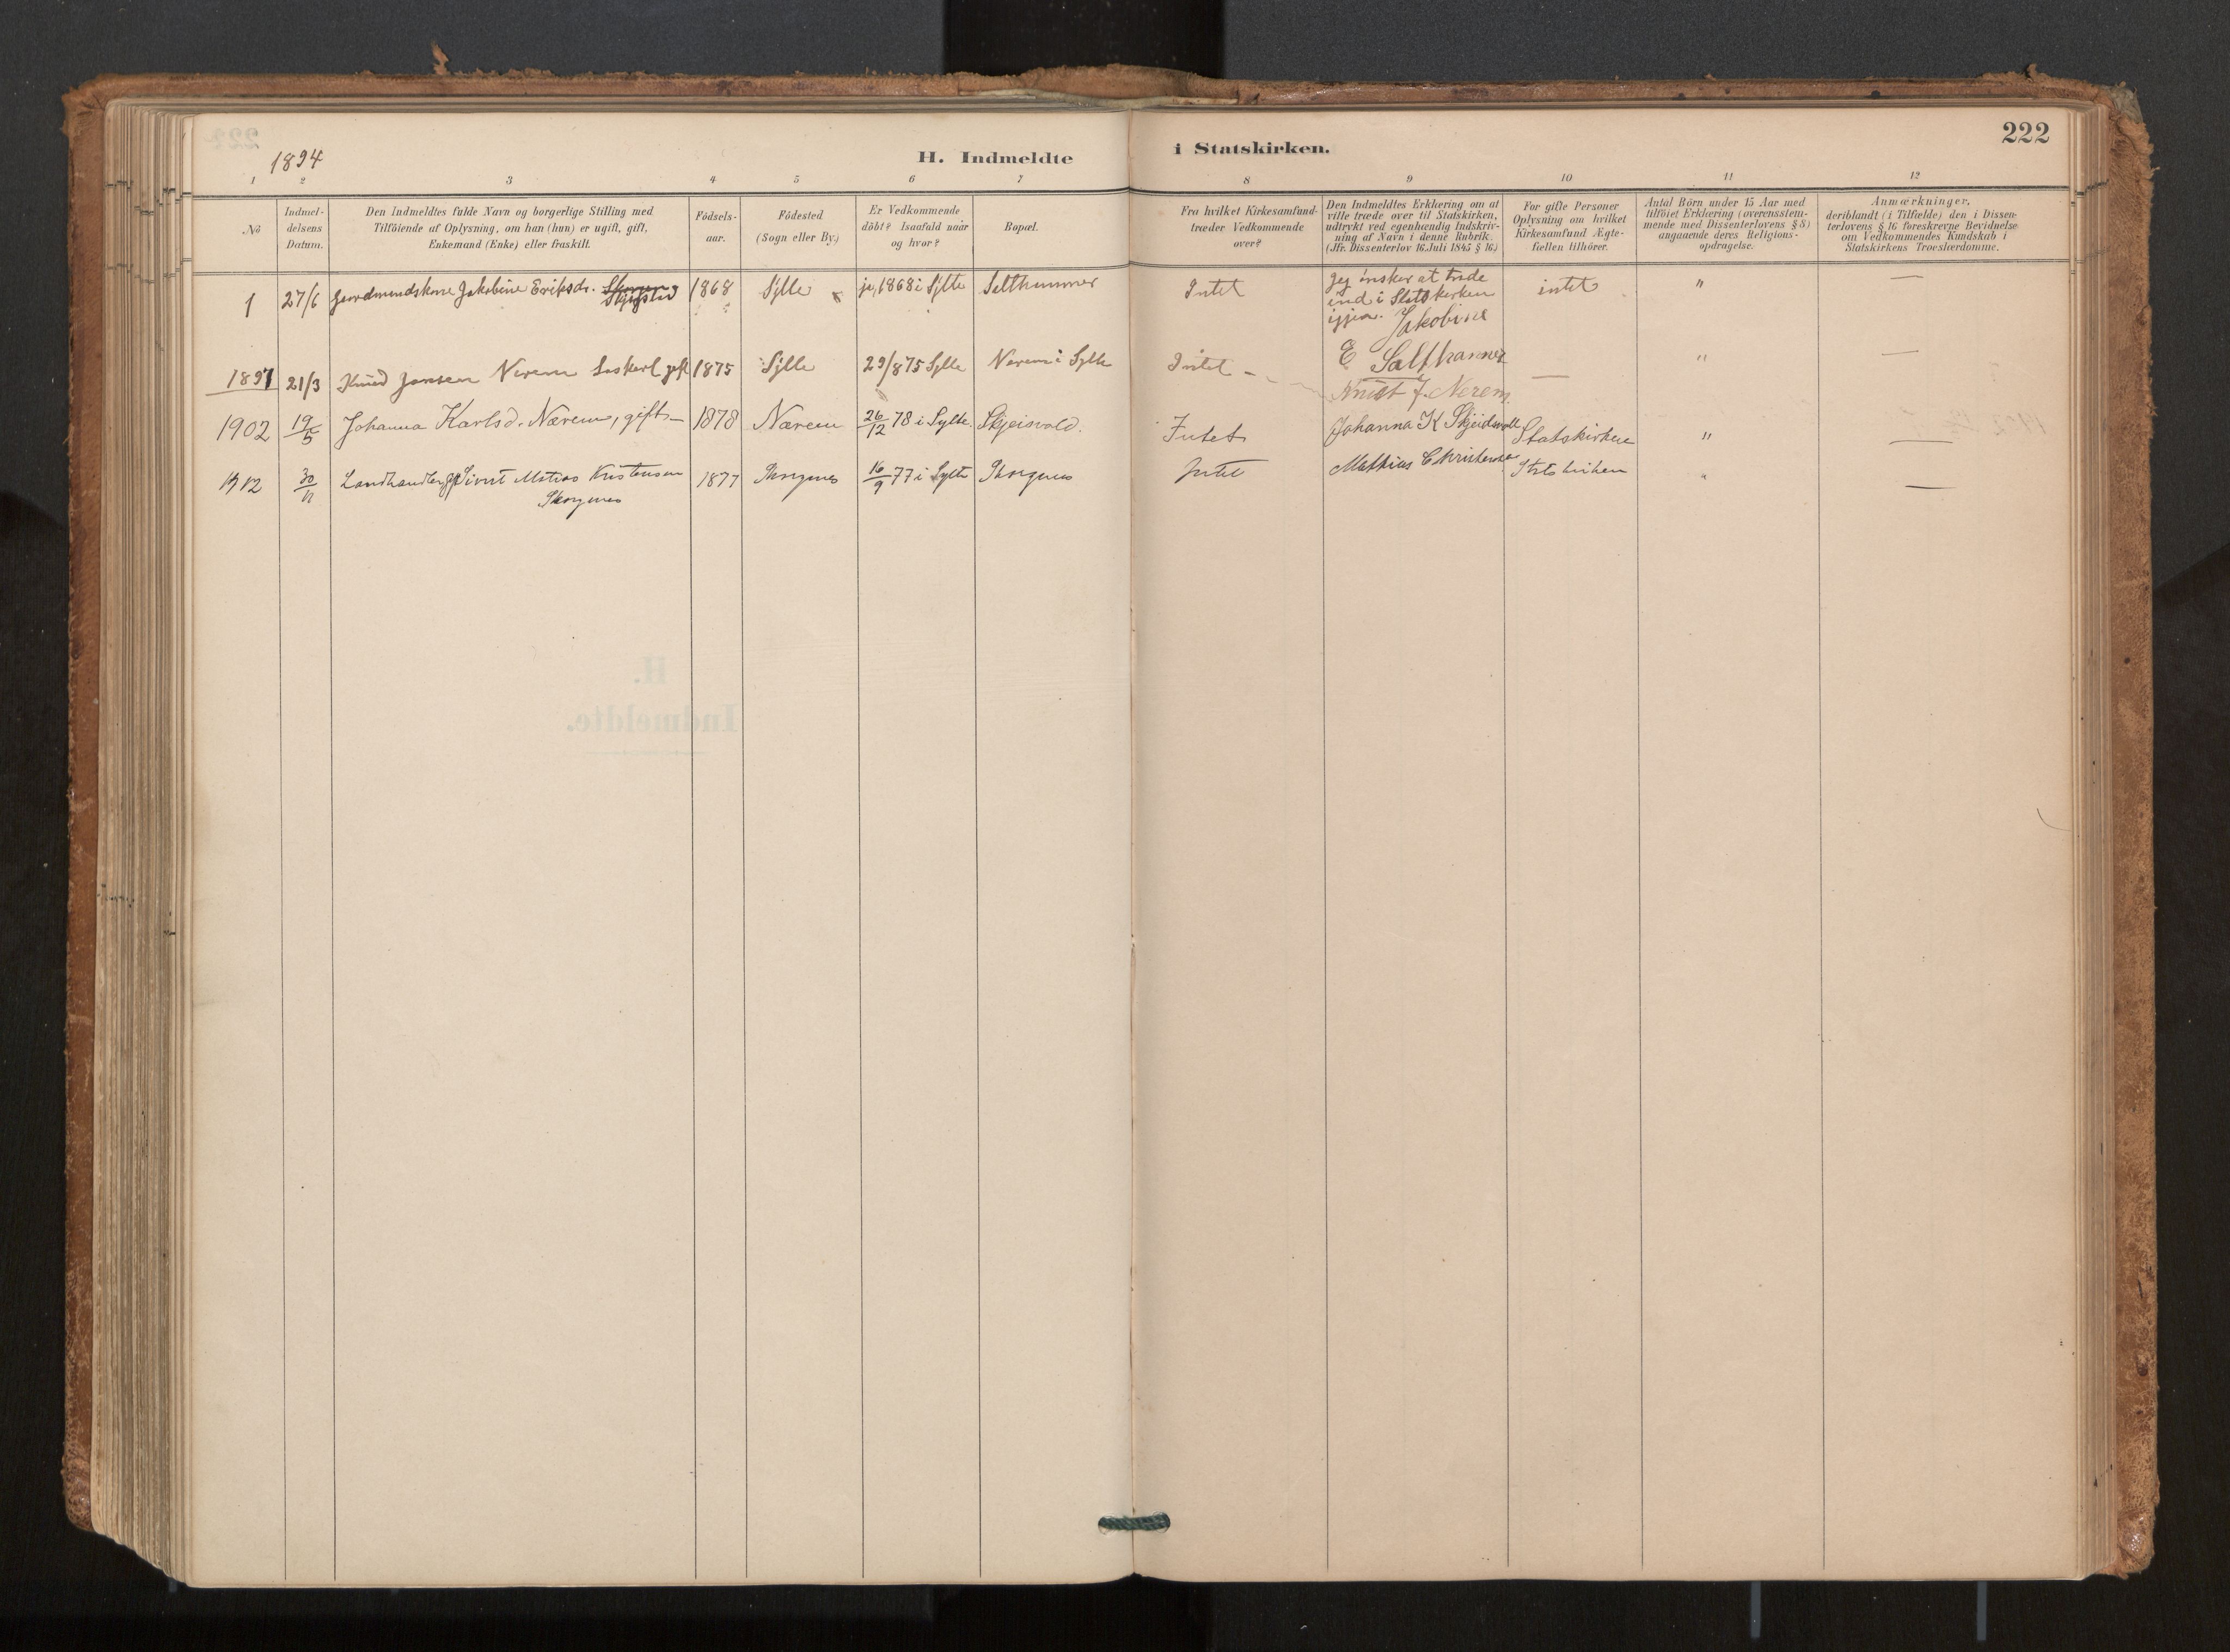 222
1894
H. Indmeldte i Statskirken.
1 2 3 4 5 6 7 8 9 10 11 12
No
Indmel-
delsens
Datum.
Den Indmeldtes fulde Navn og borgerlige Stilling med
Tilföiende af Oplysning, om han (hun) er ugift, gift,
Enkemand (Enke) eller fraskilt.
Födsels-
aar.
Födested
(Sogn eller By.)
Er Vedkommende
döbt? Isaafald naar
og hvor?
Bopæl.
Fra hvilket Kirkesamfund
træder Vedkommende
over?
Den Indmeldtes Erklæring om at
ville træde over til Statskirken,
udtrykt ved egenhændig Indskriv-
ning af Navn i denne Rubrik.
(Jfr. Dissenterlov 16 Juli 1845 § 16.)
For gifte Personer
Oplysning om hvilket
Kirkesamfund Ægte-
fællen tilhörer.
Antal Börn under 15 Aar med
tilföiet Erklæring (overensstem-
mende med Dissenterlovens § 8)
angaaende deres Religions-
opdragelse.
Anmærkninger,
deriblandt (i Tilfælde) den i Dissen-
terlovens § 16 foreskrevne Bevidnelse
om Vedkommendes Kundskab i
Statskirkens Troeslærdomme.
1 27/6 Jakobine Eriksdr. 1868 Sylte ja, 1868 i Sylte Salthammer Intet
Jeg ønsker at træde
ind i Statskirken
igjen. Jakobine
E Salthammer
intet "
1897 21/3 Knud Jonsen Nerem gift 1875 Sylte 29/8 75 Sylte Nerem i Sylte Intet -
Knut J. Nerem
— "
1902 19/5 Johanna Karlsd. Nærem, gift - 1878 Nærem 26/12 78 i Sylte. Skjeisvold. Intet Johanna K Skjeidsvoll Statskirken " —
1912 30/11 Landhandler gift Sivert Matias Kristensen
Skorgenes
1877 Skorgenes 16/9 77 i Sylte Skorgenes Intet Mathias C Kristensen Statskirken " —